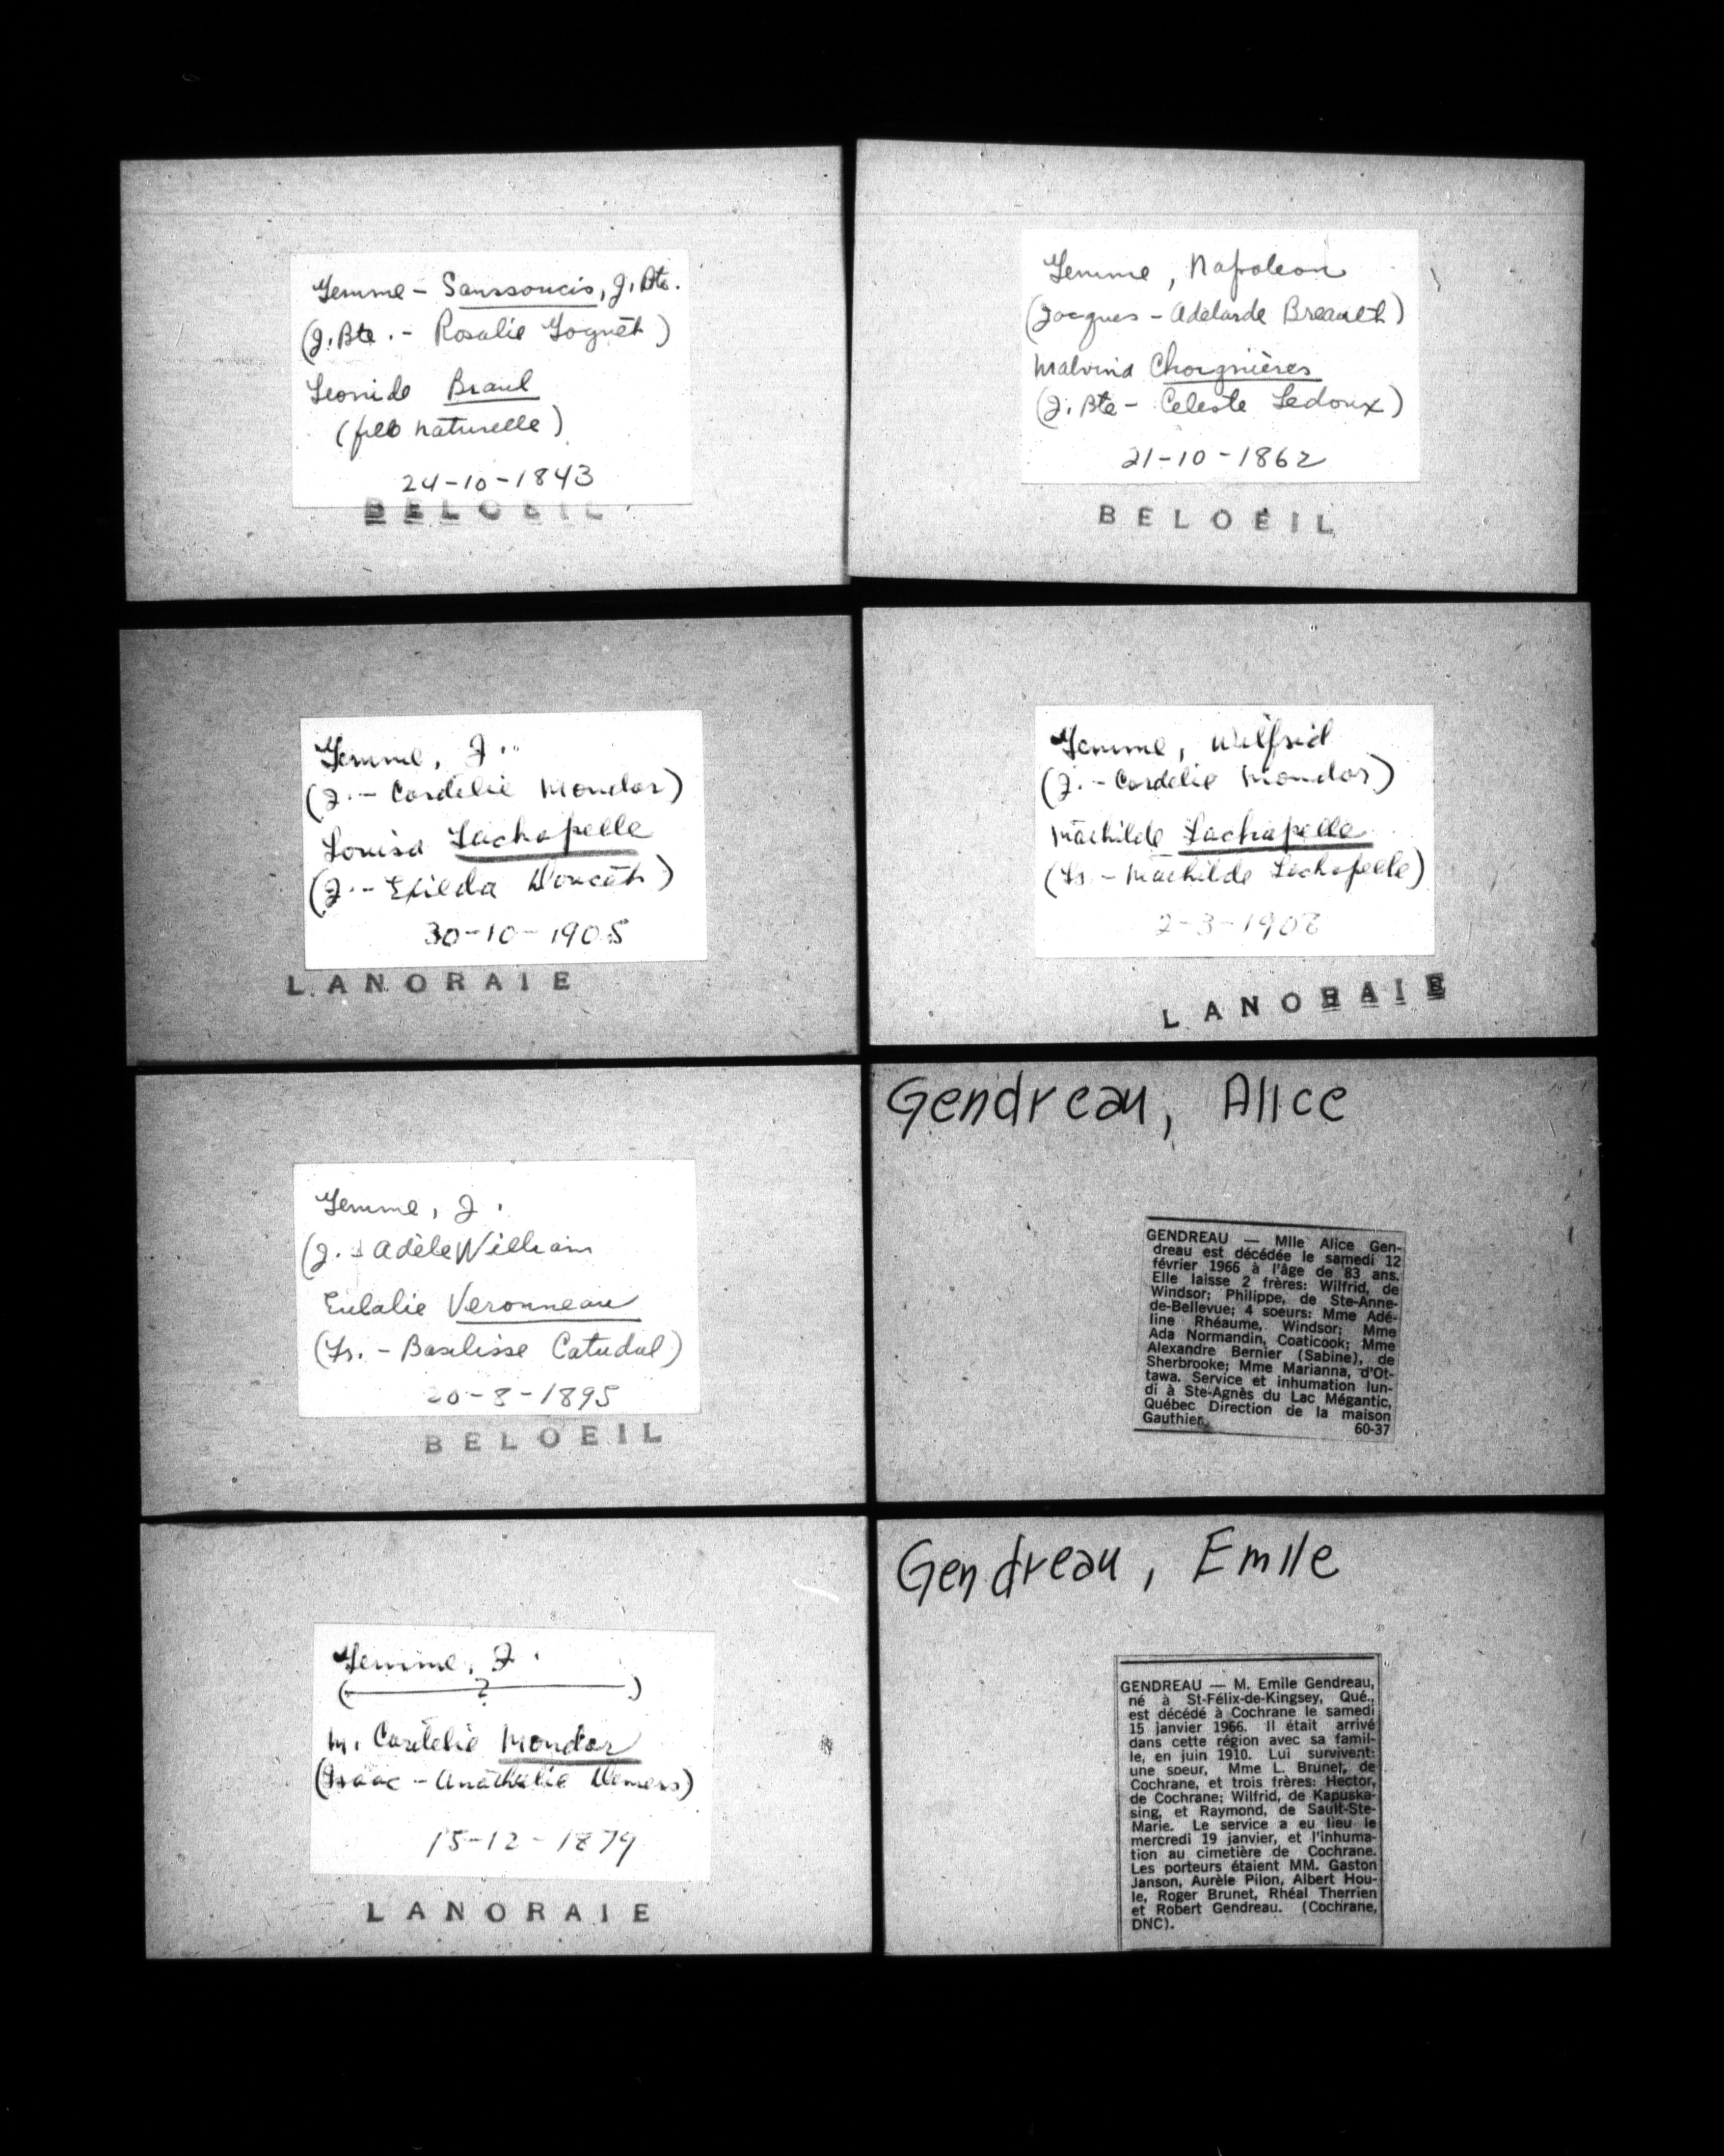 Gemme - Sanssoucis, J. Bte.
(J. Bte. - Rosalie Goguet)
Leonide Braul
(fille naturelle)
24-10-1843
BELOEIL
Gemme, Napoleon
(Jacques - Adelarde Breault)
Malvina Chorgnières
(J. Bte - Celeste Ledoux)
21-10-1862
BELOEIL
Gemme, J.
(J. - Cordelie Mondor)
Louisa Lachapelle
(J. - Exilda Doucet)
30-10-1905
LANORAIE
Gemme, Wilfrid
(J. - Cordelie Mondor)
Mathilde Lachapelle
(Fr. - Mathilde Lachapelle)
2-3-1908
LANORAIE
Gemme, J.
(J. - Adèle William
Eulalie Veronneau
(Fr. - Baselisse Catudal)
20-8-1895
BELOEIL
Gendreau, Alice
GENDREAU — Mlle Alice Gen-
dreau est décédée le samedi 12
février 1966 à l'âge de 83 ans.
Elle laisse 2 frères: Wilfrid, de
Windsor; Philippe, de Ste-Anne-
de-Bellevue; 4 soeurs: Mme Adé-
line Rhéaume, Windsor; Mme
Ada Normandin, Coaticook; Mme
Alexandre Bernier (Sabine), de
Sherbrooke; Mme Marianna, d'Ot-
tawa. Service et inhumation lun-
di à Ste-Agnès du Lac Mégantic,
Québec Direction de la maison
Gauthier.
60-37
Gemme, J.
( ? )
M. Cordelie Mondor
(Isaac - Anathalie Demers)
15-12-1879
LANORAIE
Gendreau, Emile
GENDREAU — M. Emile Gendreau,
né à St-Félix-de-Kingsey, Qué.,
est décédé à Cochrane le samedi
15 janvier 1966. Il était arrivé
dans cette région avec sa famil-
le, en juin 1910. Lui survivent:
une soeur, Mme L. Brunet, de
Cochrane, et trois frères: Hector,
de Cochrane; Wilfrid, de Kapuska-
sing, et Raymond, de Sault-Ste-
Marie. Le service a eu lieu le
mercredi 19 janvier, et l'inhuma-
tion au cimetière de Cochrane.
Les porteurs étaient MM. Gaston
Janson, Aurèle Pilon, Albert Hou-
le, Roger Brunet, Rhéal Therrien
et Robert Gendreau. (Cochrane,
DNC).